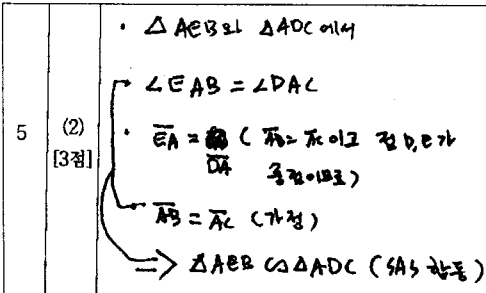 5
(2)
[3점]
· △AEB와 △ADC에서
∠EAB = ∠DAC
· EA = DA ( AB = AC이고 점 D, E가
중점이므로)
AB = AC (가정)
⇒ △AEB ∽ △ADC (SAS 합동)